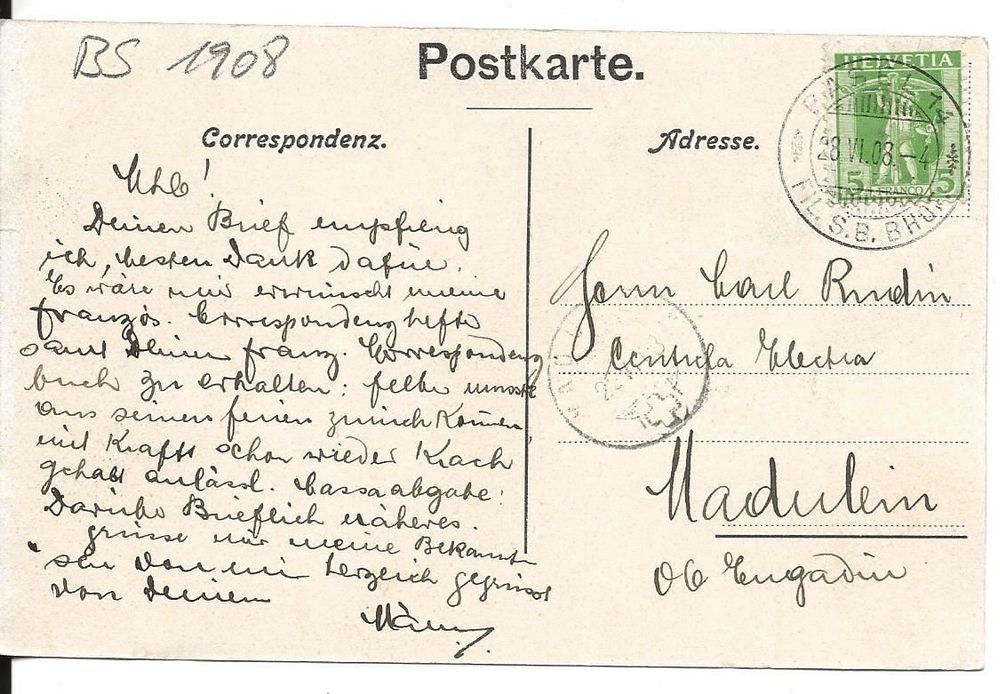 BS 1908
Postkarte.
Correspondenz.
Adresse.
HELVETIA
5 FRANCO 5
BASEL 14
28.VI.08.-4
FIL. S.B. BHOF
Deinen Brief empfieng
ich, besten Dank dafür.
Es wäre mir erwünscht meine
französ. Correspondenzhefte
samt Deinem franz. Correspondenz
buch zu erhalten: Felber musste
aus seinen Ferien zurück kommen,
mit Krafft schon wieder Krach
gehabt anlässl. Cassaabgabe!
Darüber Brieflich näheres.
grüsse mir meine Bekannten
sei von mir herzlich gegrüsst
von Deinem
Herrn Carl Rudin
Centrale Electra
Madulein
Ob Engadin